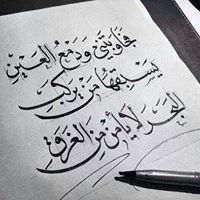 فجاوبتني ودمع العين
يسبقها من يركب
البحر لا يأمن من الغرق